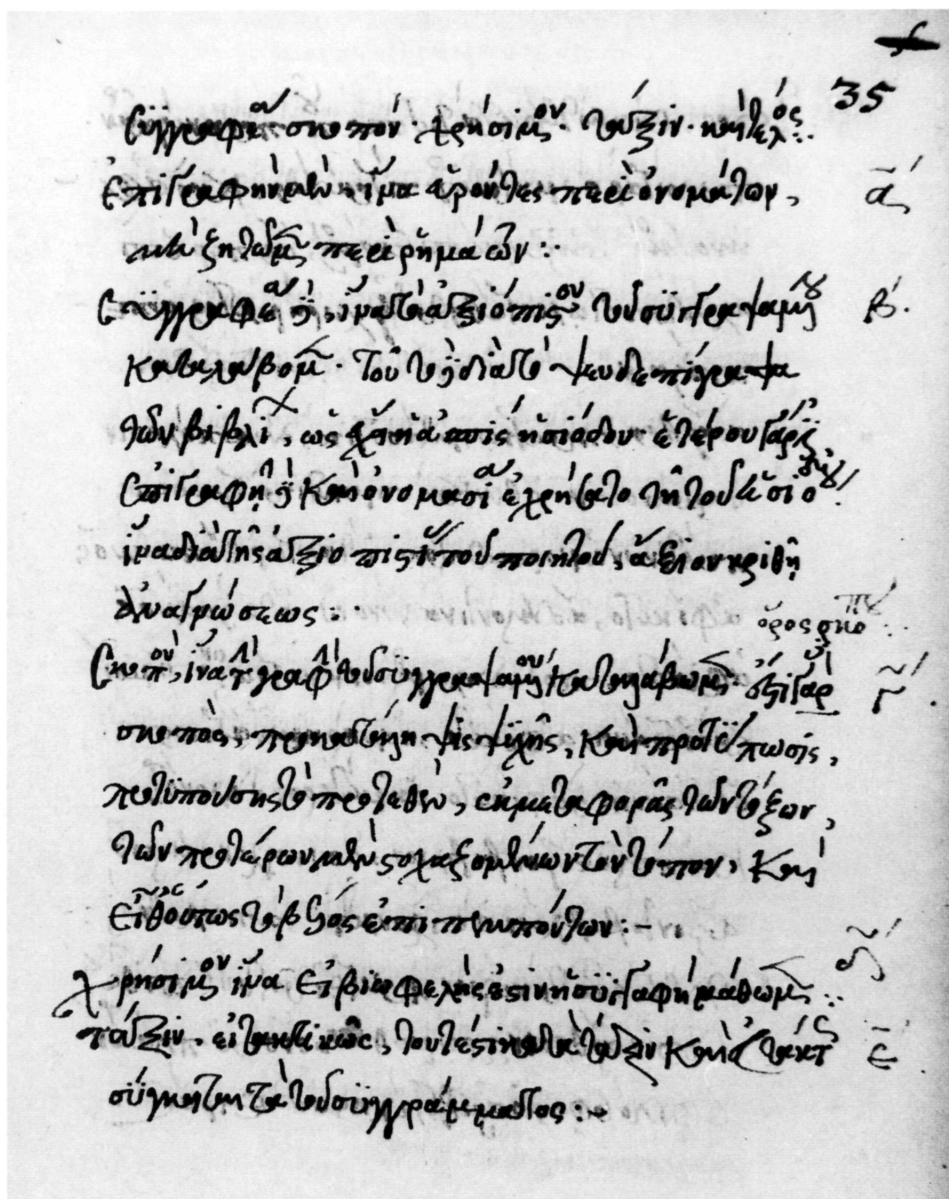 35
συγγραφέα σκοπόν· χρήσιμον· τάξιν· καὶ τέλος:
ἐπιγραφὴν μὲν, ἵνα εὑρόντες περὶ ὀνομάτων, α
μὴ ζητῶμεν περὶ ῥημάτων:
συγγραφέα, ἵνα τὸ ἀξιόπιστον τοῦ συγγραψαμένου β
καταλάβομεν· τοῦτο διὰ τὸ ψευδεπίγραφα
τῶν βιβλίων, ὡς ἡ ἀσπὶς ἡσιόδου· ἑτέρου γάρ ἐστι
ἐπιγραφῇ καὶ ὀνομασίᾳ ἐχρήσατο τῇ τοῦ ἡσιόδου
ἵνα διὰ τῆς ἀξιοπιστίας τοῦ ποιητοῦ, ἄξιον κριθῇ
ἀναγνώσεως:
ὅρος σκοποῦ
σκοπὸν, ἵνα τί γράφει τοῦ συγγραψαμένου καταλάβωμεν· γάρ γ
σκοπὸς, προκατάληψις ψυχῆς, καὶ προτύπωσις,
προτυπούσης τὸ προτεθὲν, ἐκ μεταφορᾶς τῶν τόξων,
τῶν πρότερον μὲν στοχαζομένων τὸν τόπον, καὶ
εἶθ' οὕτως τὸ βέλος ἐπιπεμπόντων:–
χρήσιμον ἵνα εἰ βιωφελής ἐστιν ἡ συγγραφὴ μάθωμεν: δ
τάξιν· εἰ τακτικῶς, τουτέστι κατὰ τάξιν καὶ ε
σύγκειται τὰ τοῦ συγγράμματος: